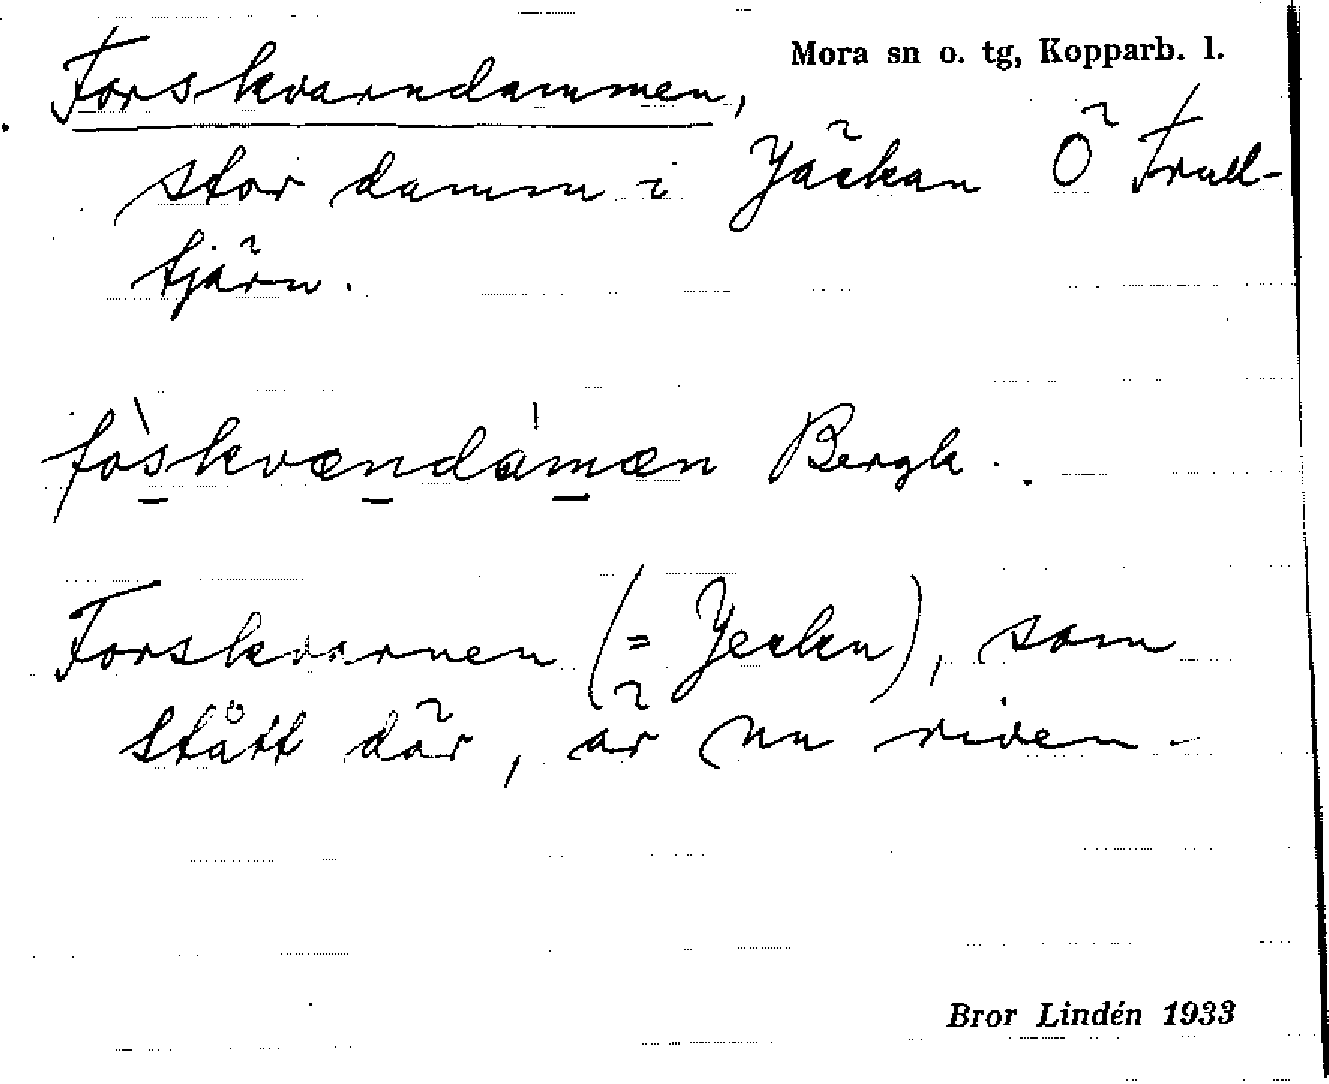 Mora sn o. tg, Kopparb. l.
Forskvarndammen,
stor damm i Jäckan Ö Trull-
tjärn.
fòskvændámæn Bergk.
Forskvarnen (= Jeckn), som
stått där, är nu riven.
Bror Lindén 1933